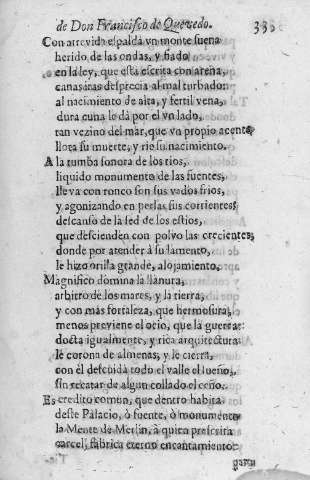 de Don Francisco de Quevedo. 33
Con atrevida espalda vn monte suena
herido de las ondas, y fiado
en la ley, que està escrita con arena,
canas iras desprecia al mal turbador:
al nacimiento de alta, y fertil vena,
dura cuna le dà por el vn lado,
tan vezino del mar, que vn propio acento,
llora su muerte, y rie su nacimiento.
A la tumba sonora de los rios,
liquido monumento de las fuentes,
lleva con ronco son sus vados frios,
y agonizando en perlas sus corrientes:
descanso de la sed de los estios,
que descienden con polvo las crecientes,
donde por atender à su lamento,
le hizo orilla grande, alojamiento.
Magnifico domina la llanura,
arbitro de los mares, y la tierra,
y con mas fortaleza, que hermosura,
menos previene el ocio, que la guerra:
docta igualmente, y rica arquitectura
le corona de almenas, y le cierra,
con èl descuida todo el valle el sueño,
sin recatar de algun collado el ceño.
Es credito comun, que dentro habita
deste Palacio, ò fuente, ò monumento
la Mente de Merlin, à quien prescrita
carcel, fabrica eterno encantamento: